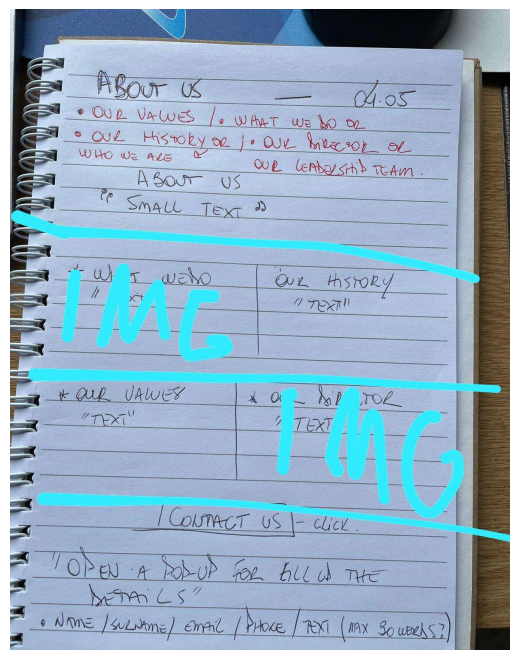 ABOUT US — 04.05
• OUR VALUES / • WHAT WE DO OR
• OUR HISTORY OR / • OUR DIRECTOR OR
WHO WE ARE OUR LEADERSHIP TEAM.
ABOUT US
" SMALL TEXT "
* WHAT WE DO OUR HISTORY
"TEXT" "TEXT"
IMG
* OUR VALUES * OUR DIRECTOR
"TEXT" "TEXT
IMG
CONTACT US - CLICK.
"OPEN A POP-UP FOR FILL IN THE
DETAILS"
• NAME / SURNAME / EMAIL / PHONE / TEXT (MAX 30 WORDS?)